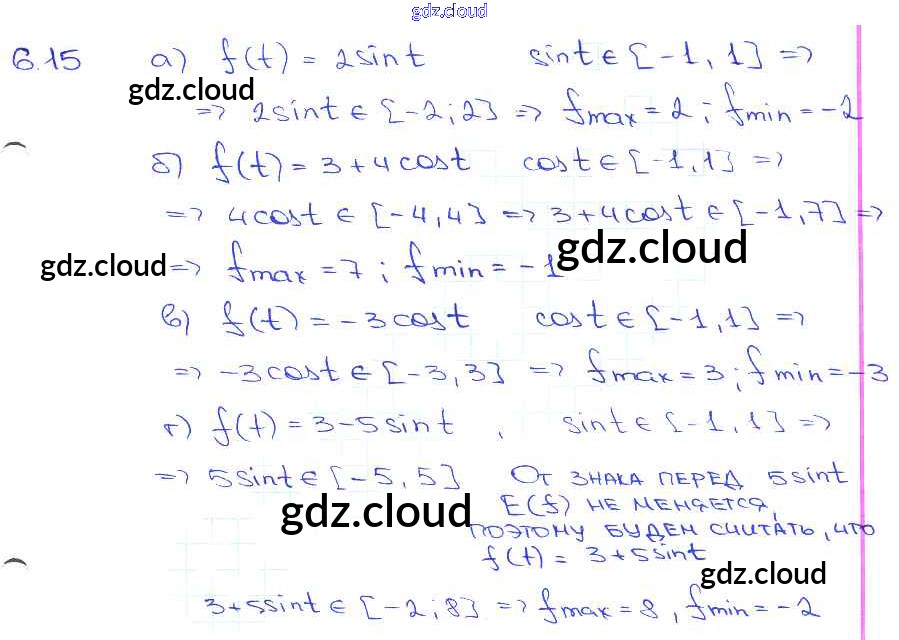 gdz.cloud
6.15 а) f(t) = 2sint sint ∈ [-1, 1] =>
gdz.cloud
=> 2sint ∈ [-2; 2] => fmax = 2; fmin = -2
б) f(t) = 3 + 4cost cost ∈ [-1, 1] =>
=> 4cost ∈ [-4, 4] => 3 + 4cost ∈ [-1, 7] =>
gdz.cloud
gdz.cloud => fmax = 7; fmin = -1
в) f(t) = -3cost cost ∈ [-1, 1] =>
=> -3cost ∈ [-3, 3] => fmax = 3; fmin = -3
г) f(t) = 3 - 5sint, sint ∈ [-1, 1] =>
=> 5sint ∈ [-5, 5] От знака перед 5sint
E(f) не меняется,
gdz.cloud
поэтому будем считать, что
f(t) = 3 + 5sint
gdz.cloud
3 + 5sint ∈ [-2; 8] => fmax = 8, fmin = -2